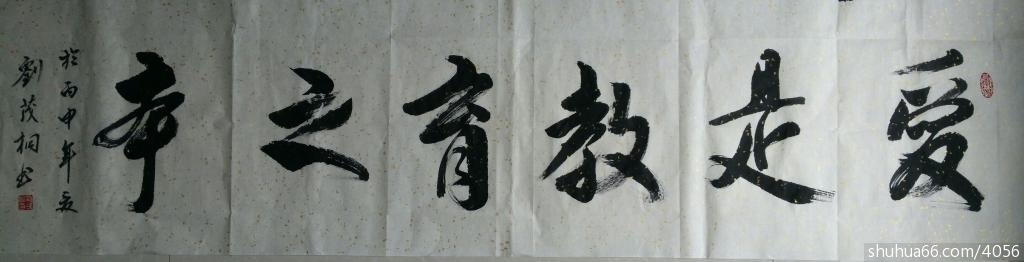 爱是教育之本
於丙申年夏
劉茂桐书
shuhua66.com/4056